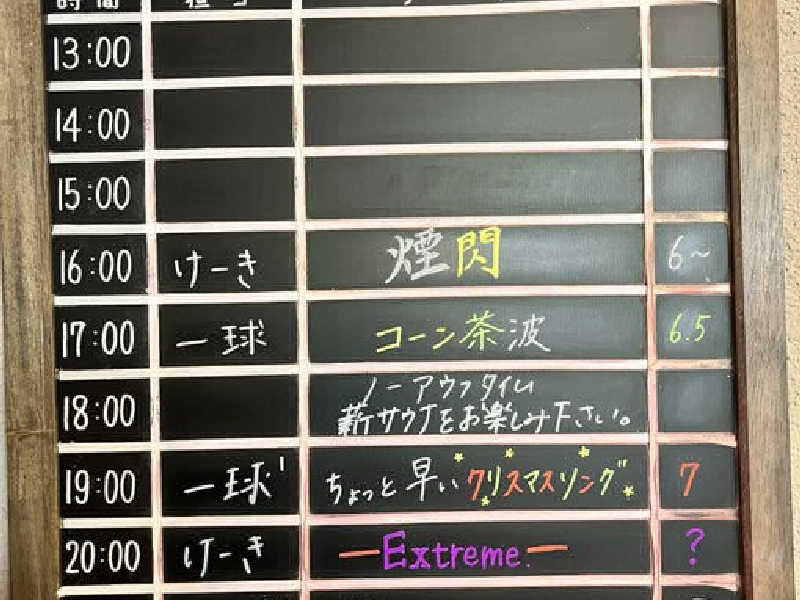 時間 担当
13:00
14:00
15:00
16:00 けーき 煙閃 6~
17:00 一球 コーン茶波 6.5
18:00 ノーアウフタイム
薪サウナをお楽しみ下さい。
19:00 一球 ちょっと早いクリスマスソング 7
20:00 けーき ーExtreme.ー ?